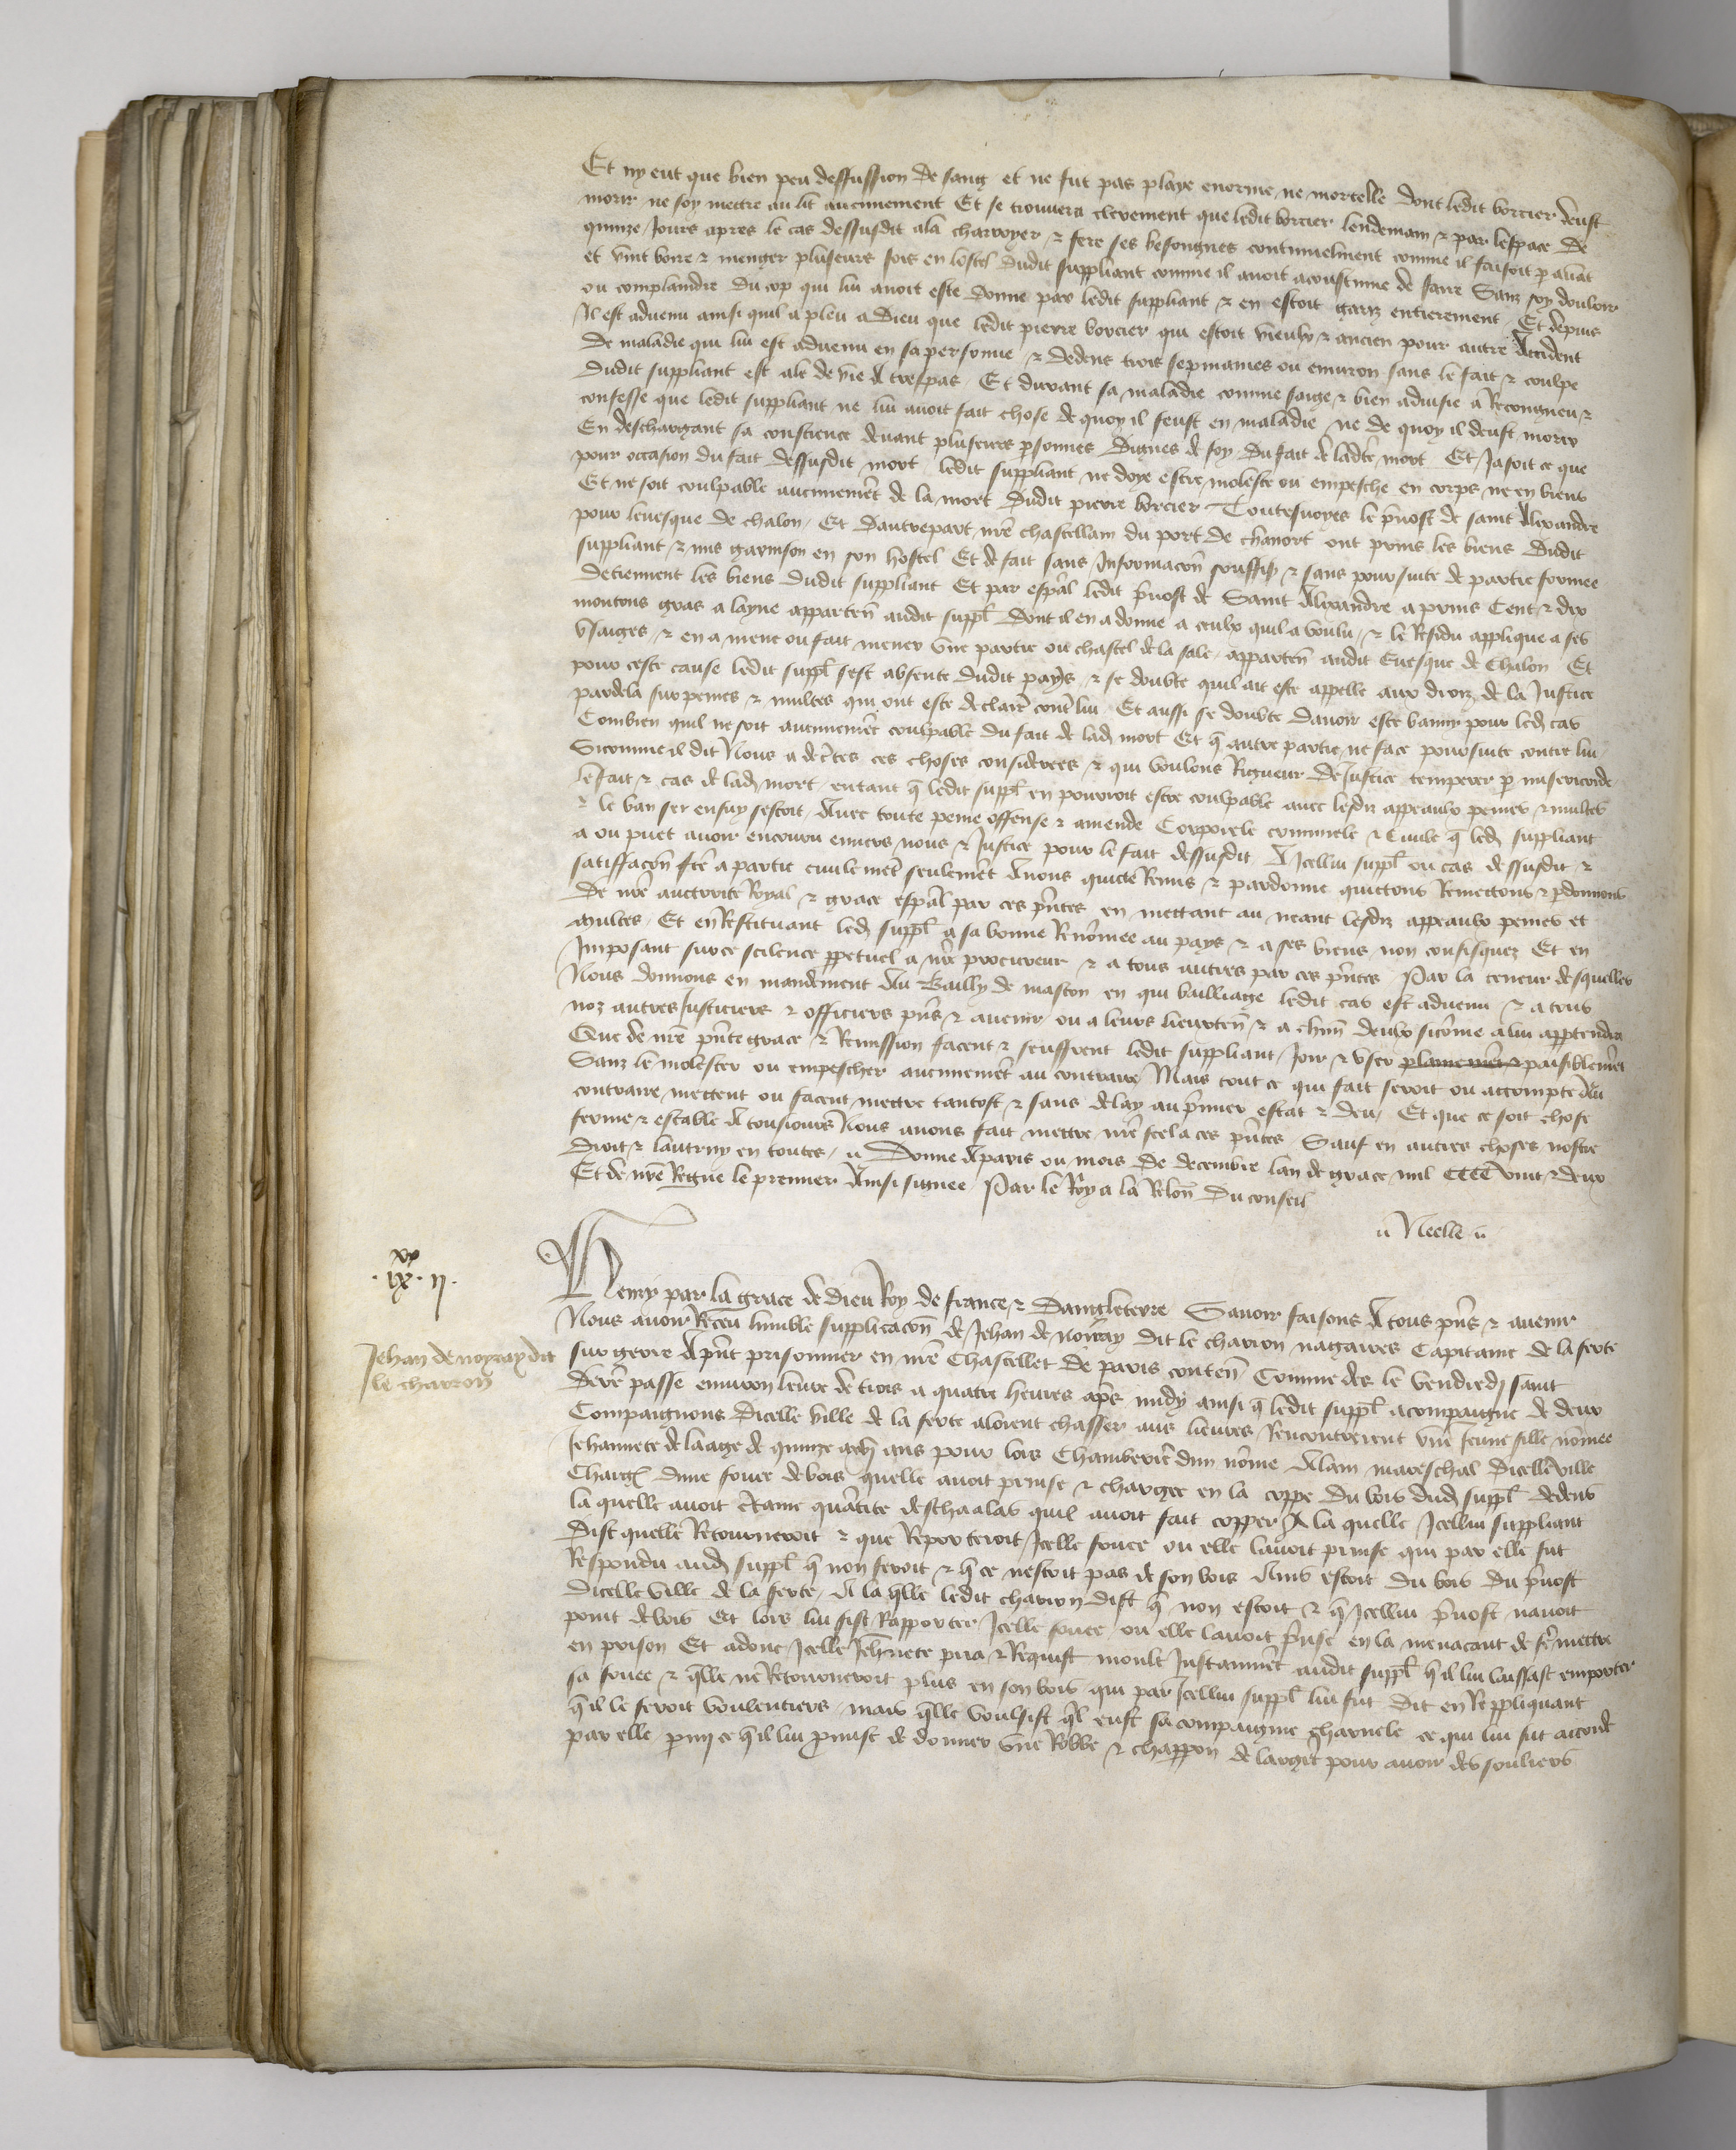 Et ny eut que bien peu deffussion de sang et ne fut pas playe enorme ne mortelle dont ledit borcier deust
morir ne soy mettre au lit aucunement Et se trouvera clerement que ledit borcier lendemain & par lespace de
quinze Jours apres le cas dessusdit ala charroyer & fere ses besongnes continuelment comme il faisoit p avat
et vint boire & menger pluseurs fois en lostel dudit suppliant comme il avoit acoustume de faire Sanz soy douloir
ou complaindre du cop qui lui avoit este donne par ledit suppliant & en estoit gariz entierement Et depuis
Il est advenu ainsi quil a pleu a Dieu que ledit pierre borcier qui estoit vieulx & ancien pour autre Accident
de maladie qui lui est advenu en sa personne & dedens trois sepmaines ou environ sans le fait & coulpe
dudit suppliant est ale de vie A trespas Et durant sa maladie comme saige & bien advisie a Recongneu &
confesse que ledit suppliant ne lui avoit fait chose de quoy il feust en maladie ne de quoy il deust morir
En deschargant sa conscience devant pluseurs psonnes dignes de foy du fait de ladte mort Et Jasoit ce que
pour occasion du fait dessusdit mort ledit suppliant ne doye estre moleste ou empesche en corps ne en biens
Et ne soit coulpable aucunemet de la mort dudit pierre borcier Toutesvoyes le pvost de saint Alixandre
pour levesque de chalon Et dautrepart nre chastellain du port de chavort ont prins les biens dudit
suppliant & mis garnison en son hostel Et de fait sans Informacon souffis & sans poursuite de partie formee
detiennent les biens dudit suppliant Et par espal ledit pvost de Saint Alixandre a prins Cent & dix
moutons gras a layne apparten audit suppl dont il en a donne a ceulx quil a voulu & le Residu applique a ses
vsaiges & en a mene ou fait mener vne partie ou chastel de la sale apparten audit Evesque de Chalon Et
pour ceste cause ledit suppl sest absente dudit pays & se doubte quil ait este appelle aux droiz de la Justice
pardela sur peines & multes qui ont este declaire contre lui Et aussi se doubte davoir este banny pour led cas
Combien quil ne soit aucunemet coulpable du fait de lad mort Et q autre partie ne face poursuite contre lui
Sicomme il dit Nous adctes ces choses considerees & qui voulons Rigueur de Justice temperer p misericorde
le fait & cas de lad mort entant q ledit suppl en pouvroit estre coulpable avec lesdiz appeaulx peines & multes
& le ban ser ensuy sestoit Avec toute peine offense & amende Corporele criminele & Civile q led suppliant
a ou puet avoir encouru envers nous & Justice pour le fait dessusdit A Icellui suppl ou cas dessusdit &
satiffacon fte a partie civilemet seulemet Avons quicte Remis & pardonne quictons Remettons & pdonnons
De nre auctorite Royal & grace espal par ces pntes en mettant au neant lesdiz appeaulx peines et
multes Et en Restituant led suppl a sa bonne Renomee au pays & a ses biens non confisquez Et en
Imposant sur ce scilence ppetuel a nre procureur & a tous autres par ces pntes Par la teneur desquelles
Nous donnons en mandement Au Bailly de mascon en qui bailliage ledit cas est advenu & a tous
noz autres Justiciers & officiers pns & avenir ou a leurs lieuxten & a chun deulx sicome a lui apptendra
Que de nre pnte grace & Remission facent & seuffrent ledit suppliant Joir & vser plainemet & paisiblemet
Sanz le molester ou empescher aucunemet au contraire Mais tout ce qui fait seroit ou attempte Au
contraire mettent ou facent mettre tantost & sans delay au pmier estat & deu Et que ce soit chose
ferme & estable A tousiours Nous avons fait mettre nre scel a ces pntes Sauf en autres choses nostre
droit & lautruy en toutes Donne A paris ou mois de decembre lan de grace mil CCCC vint & deux
Et de nre Regne le premier Ainsi signee Par le Roy a la Relon du conseil
Neelle
xx
ix ij
Henry par la grace de Dieu Roy de france & Dangleterre Savoir faisons A tous pns & avenir
Nous avoir Receu humble supplicacon de Jehan de noiray dit le charron nagaires Capitaine de la ferte
Jehan de noyray dit
le charron
sur gerre A pnt prisonnier en nre Chastellet de paris conten Comme des le vendredi saint
derre passe environ leure de trois a quatre heures aps midy ainsi q ledit suppl acompaigne de deux
Compaignons dicelle ville de la ferte aloient chasser aus lievres Rencontrerent vne jeune fille nomee
Jehannete de laage de quinze a xvj ans pour lors Chamberiere dun nome Alain mareschal dicelle ville
Charg dune fouee de bois quelle avoit prinse & chargee en la coppe du bois dud suppl dedens
la quelle avoit ctaine quatite deschaalas quil avoit fait copper A la quelle Icellui suppliant
dist quelle Retourneroit & que Reporteroit Icelle fouee ou elle lavoit prinse qui par elle fut
Respondu aud suppl q non feroit & q ce nestoit pas de son bois Ains estoit du bois du pvost
dicelle ville de la ferte A la qlle ledit charron dist q non estoit & q Icellui pvost navoit
point de bois Et lors lui fist Rapporter Icelle fouee ou elle lavoit pnse en la menacant de fe mettre
en prison Et adonc Icelle Jehnete pria & Requist moult Instanmet audit suppl q il lui laissast emporter
sa fouee & qlle ne Retourneroit plus en son bois qui par Icellui suppl lui fut dit en Reppliquant
q il le feroit voulentiers mais qlle voulsist ql eust sa compaignie charnele ce qui lui fut accorde
par elle pmy ce q il lui pmist de donner vne Robbe & chappon de largēt pour avoir des souliers